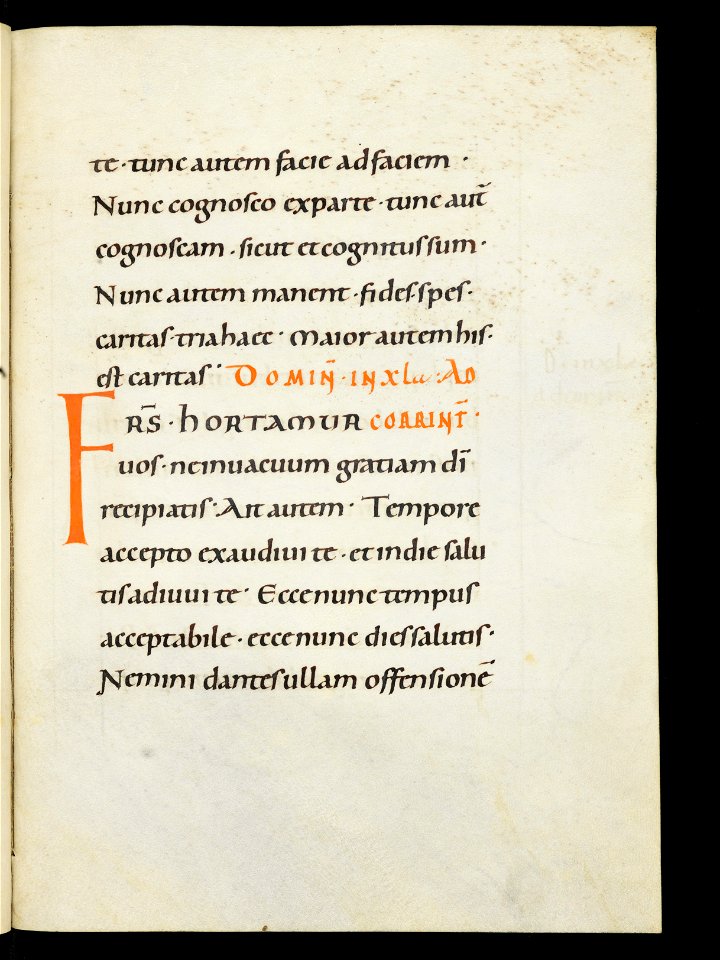 te · tunc autem facie adfaciem ·
Nunc cognosco exparte · tunc aut̄
cognoscam · sicut etcognitussum ·
Nunc autem manent · fides·spes·
caritas·triahaec · Maior autemhis·
est caritas · DOMIN̄ · INXLa · AD
FRS̄ · HORTAMUR CORRINT̄ ·
uos · neinuacuum gratiam dī
recipiatis · Ait autem · Tempore
accepto exaudiui te · et indie salu
tisadiuui te · Eccenunctempus
acceptabile · eccenunc diessalutis ·
Nemini dantesullam offensionē